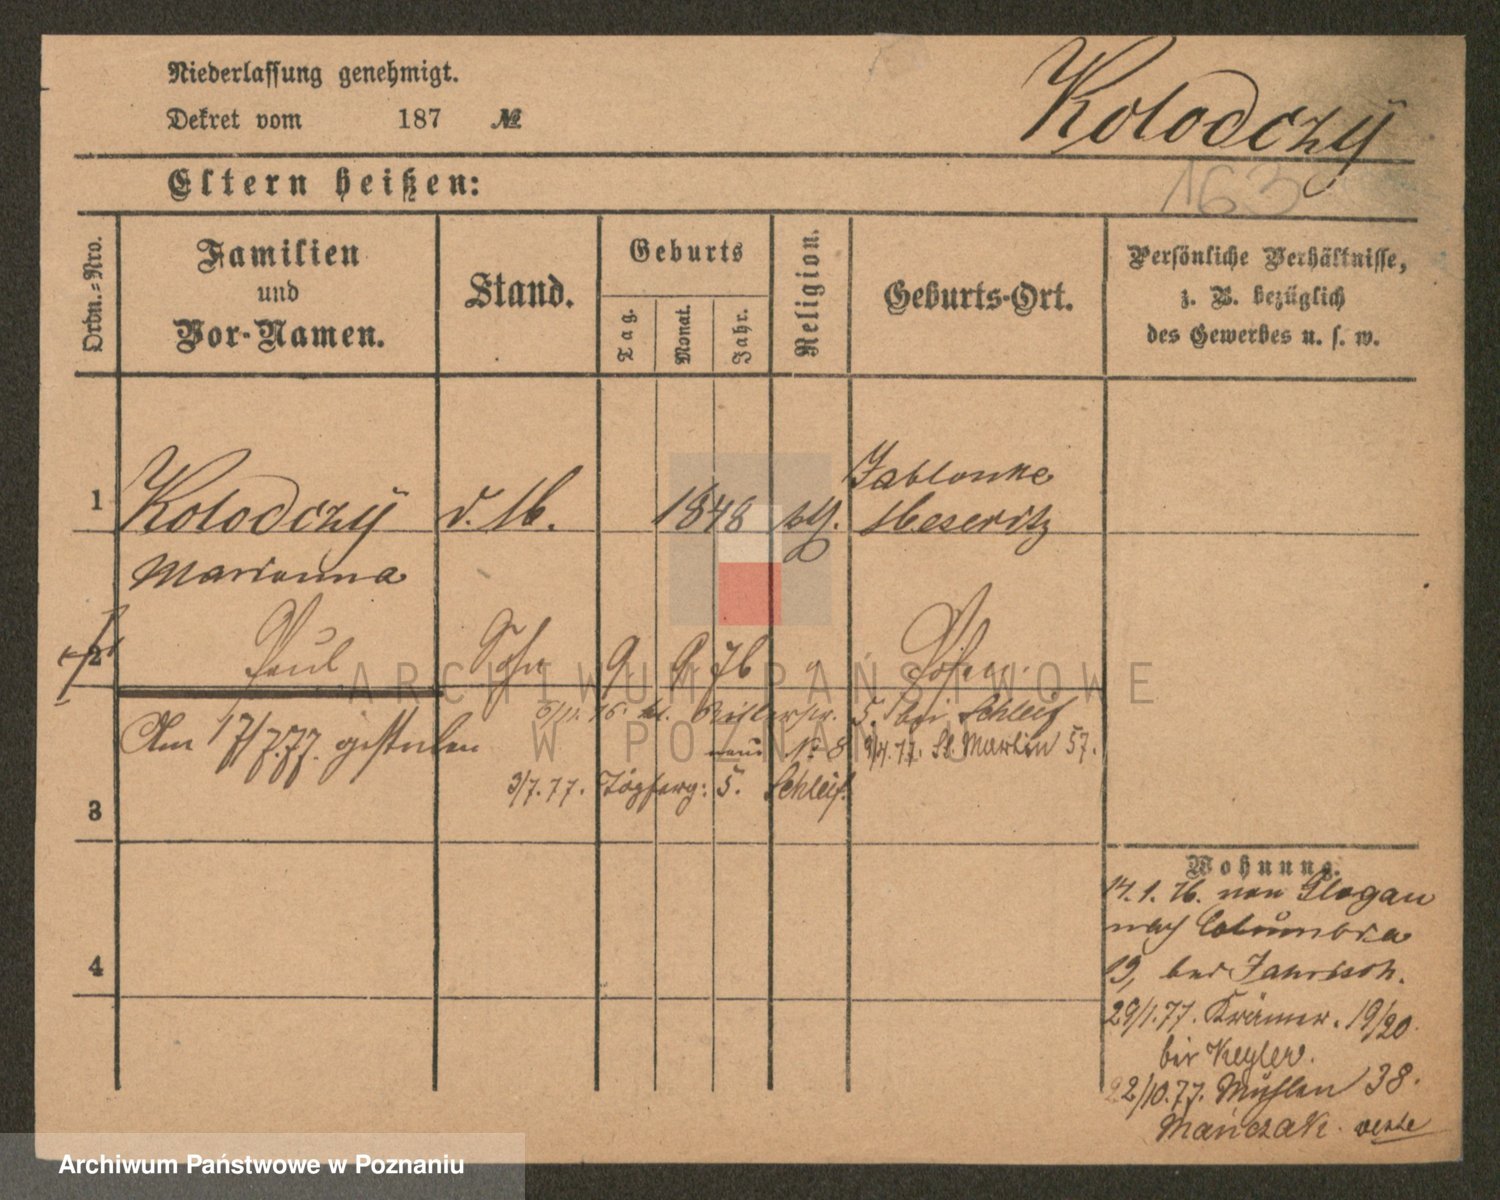 Niederlassung genehmigt.
Dekret vom 187 №
Kolodczÿ
163
Eltern heißen:
Ordn.-Nro.
Familien
und
Vor-Namen.
Stand.
Geburts
Tag.
Monat.
Jahr.
Religion.
Geburts-Ort.
Persönliche Verhältnisse,
z. B. bezüglich
des Gewerbes u. s. w.
1 Kolodczÿ d. M. 1848 kth. Jablonke
Meseritz
Marianna
2 Paul Sohn 9. 9. 76 Posen.
Am 17/7.77. gestorben
5. bei Schleif
No 8 9/4.77. St. Martin 57.
3/7.77. 5. Schleif.
3
Wohnung.
14.1.76. von Glogau
nach Columbia
19, bei
29/1.77. Krämer. 19/20.
bei Kegler.
22/10.77. Mühlen 38.
Mańczak.
4
ARCHIWUM PAŃSTWOWE
W POZNANIU
Archiwum Państwowe w Poznaniu